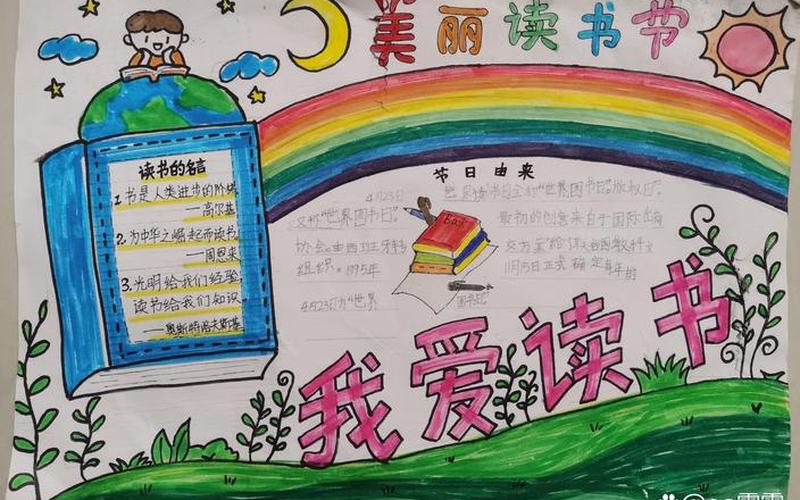 美丽读书节
读书的名言
1.书是人类进步的阶梯
——高尔基
2.为中华之崛起而读书。
——周恩来
3.光明给我们经验,
读书给我们知识。
——奥斯特洛夫斯基
节日由来
4月23日 世界读书日全称"世界图书日版权日"。
又称"世界图书日"。 最初的创意来自于国际出
协会。由西班牙 交方案给
组织。1995年 11月5日正式确定每年的
4月23日为"世界 图书日"
Book
我爱读书